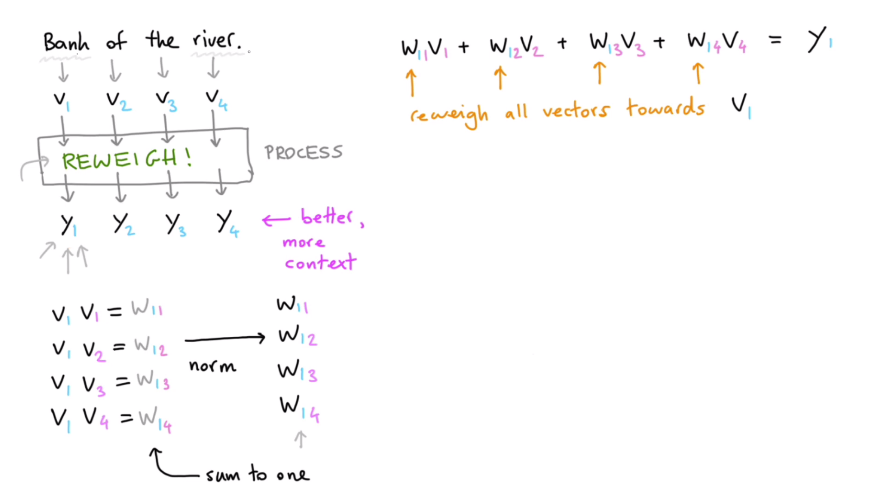 Bank of the river.
V1 V2 V3 V4
REWEIGH!
PROCESS
Y1 Y2 Y3 Y4 ← better,
more
context
V1 V1 = W11
V1 V2 = W12
V1 V3 = W13
V1 V4 = W14
norm
W11
W12
W13
W14
sum to one
W11V1 + W12V2 + W13V3 + W14V4 = Y1
reweigh all vectors towards V1